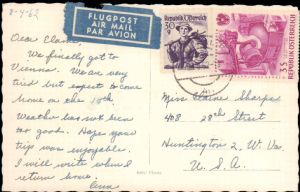 8-4-62
FLUGPOST
AIR MAIL
PAR AVION
Dear Elaine,
We finally got to
Vienna. We are very
tired but expect to come
home on the 18th.
Weather has not been
too good. Hope your
trip was enjoyable.
I will write when I
return home.
Anna
30
REPUBLIK ÖSTERREICH
Miss Elaine Sharpe
408 28th Street
Huntington 2 W. Va.
U.S.A.